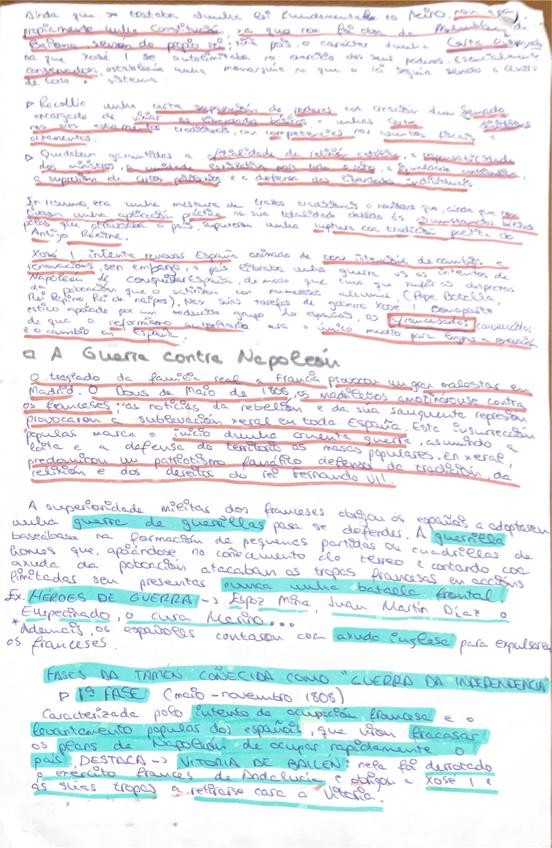 Aínda que se trataba dunha lei fundamental no Reino, non era
propiamente unha Constitución, xa que non foi obra da Asemblea de
Baiona senón do propio rei; tiña pois, o carácter dunha Carta Outorgada
na que Xosé I se autolimitaba no exercicio dos seus poderes. Esencialmente
conservador, establecía unha monarquía na que o rei seguía sendo o centro
de todo o sistema.
▷ Recollía unha certa separación de poderes coa creación dun Senado
encargado de vixiar as liberdades básicas e unhas Cortes
nos tres estamentos tradicionais, con competencias nos asuntos fiscais e
orzamentos.
▷ Quedaban garantidas a
dos ministros, a unidade lexislativa para todo o país, a igualdade
a supresión de certos privilexios e a defensa das liberdades individuais.
En resumo, era unha mestura de trazos tradicionais e novidosos que, aínda que non
tivesen unha aplicación práctica na súa totalidade debido ás
polas que atravesaba o país, supuxeron unha ruptura coa tradición política do
Antigo Réxime.
Xosé I intenta reinar España animado de boas intencións de cambios e
renovacións, sen embargo, o país libraba unha guerra vs os intentos de
Napoleón de conquistar España, de modo que tivo que sufrir os desprezos
da poboación que o satirizou con numerosos alcumes (Pepe Botella,
Rei Pepino, Rei de naipes). Nas súas tarefas de goberno Xosé I Bonaparte
estivo apoiado por un reducido grupo de españois, os afrancesados convencidos
de que o reformismo autoritario era o único medio para lograr o progreso
e o cambio en España.
◻ A Guerra contra Napoleón
O traslado da familia real a Francia provocou un gran malestar en
Madrid. O Dous de Maio de 1808, os madrileños amotináronse contra
os franceses; as noticias da rebelión e da súa sanguenta represión
provocaron a sublevación xeral en toda España. Esta insurrección
popular marca o inicio dunha cruenta guerra, asumindo a
loita e a defensa do territorio as masas populares. En xeral,
predominou un patriotismo fanático defensor da tradición, da
relixión e dos dereitos do rei Fernando VII.
A superioridade militar dos franceses obrigou os españois a adoptaren
unha guerra de guerrillas para se defender. A guerrilla
baseábase na formación de pequenas partidas ou cuadrillas de
homes que, apoiándose no coñecemento do terreo e contando coa
axuda da poboación atacaban as tropas francesas en accións
limitadas sen presentar nunca unha batalla frontal.
Ex. HEROES DE GUERRA → Espoz Mina, Juan Martín Díaz o
Empecinado, o cura Merino...
* Ademais, os españois contaron coa axuda inglesa para expulsaren
os franceses.
FASES DA TAMÉN COÑECIDA COMO "GUERRA DA INDEPENDENCIA"
▷ 1ª FASE (maio - novembro 1808)
Caracterizada polo intento de ocupación francesa e o
levantamento popular dos españois, que viron fracasar
os plans de Napoleón de ocupar rapidamente o
país. DESTACA → VITORIA DE BAILÉN: nela foi derrotado
o exército francés de Andalucía e obrigou a Xosé I e
ás súas tropas a retirarse cara a Vitoria.